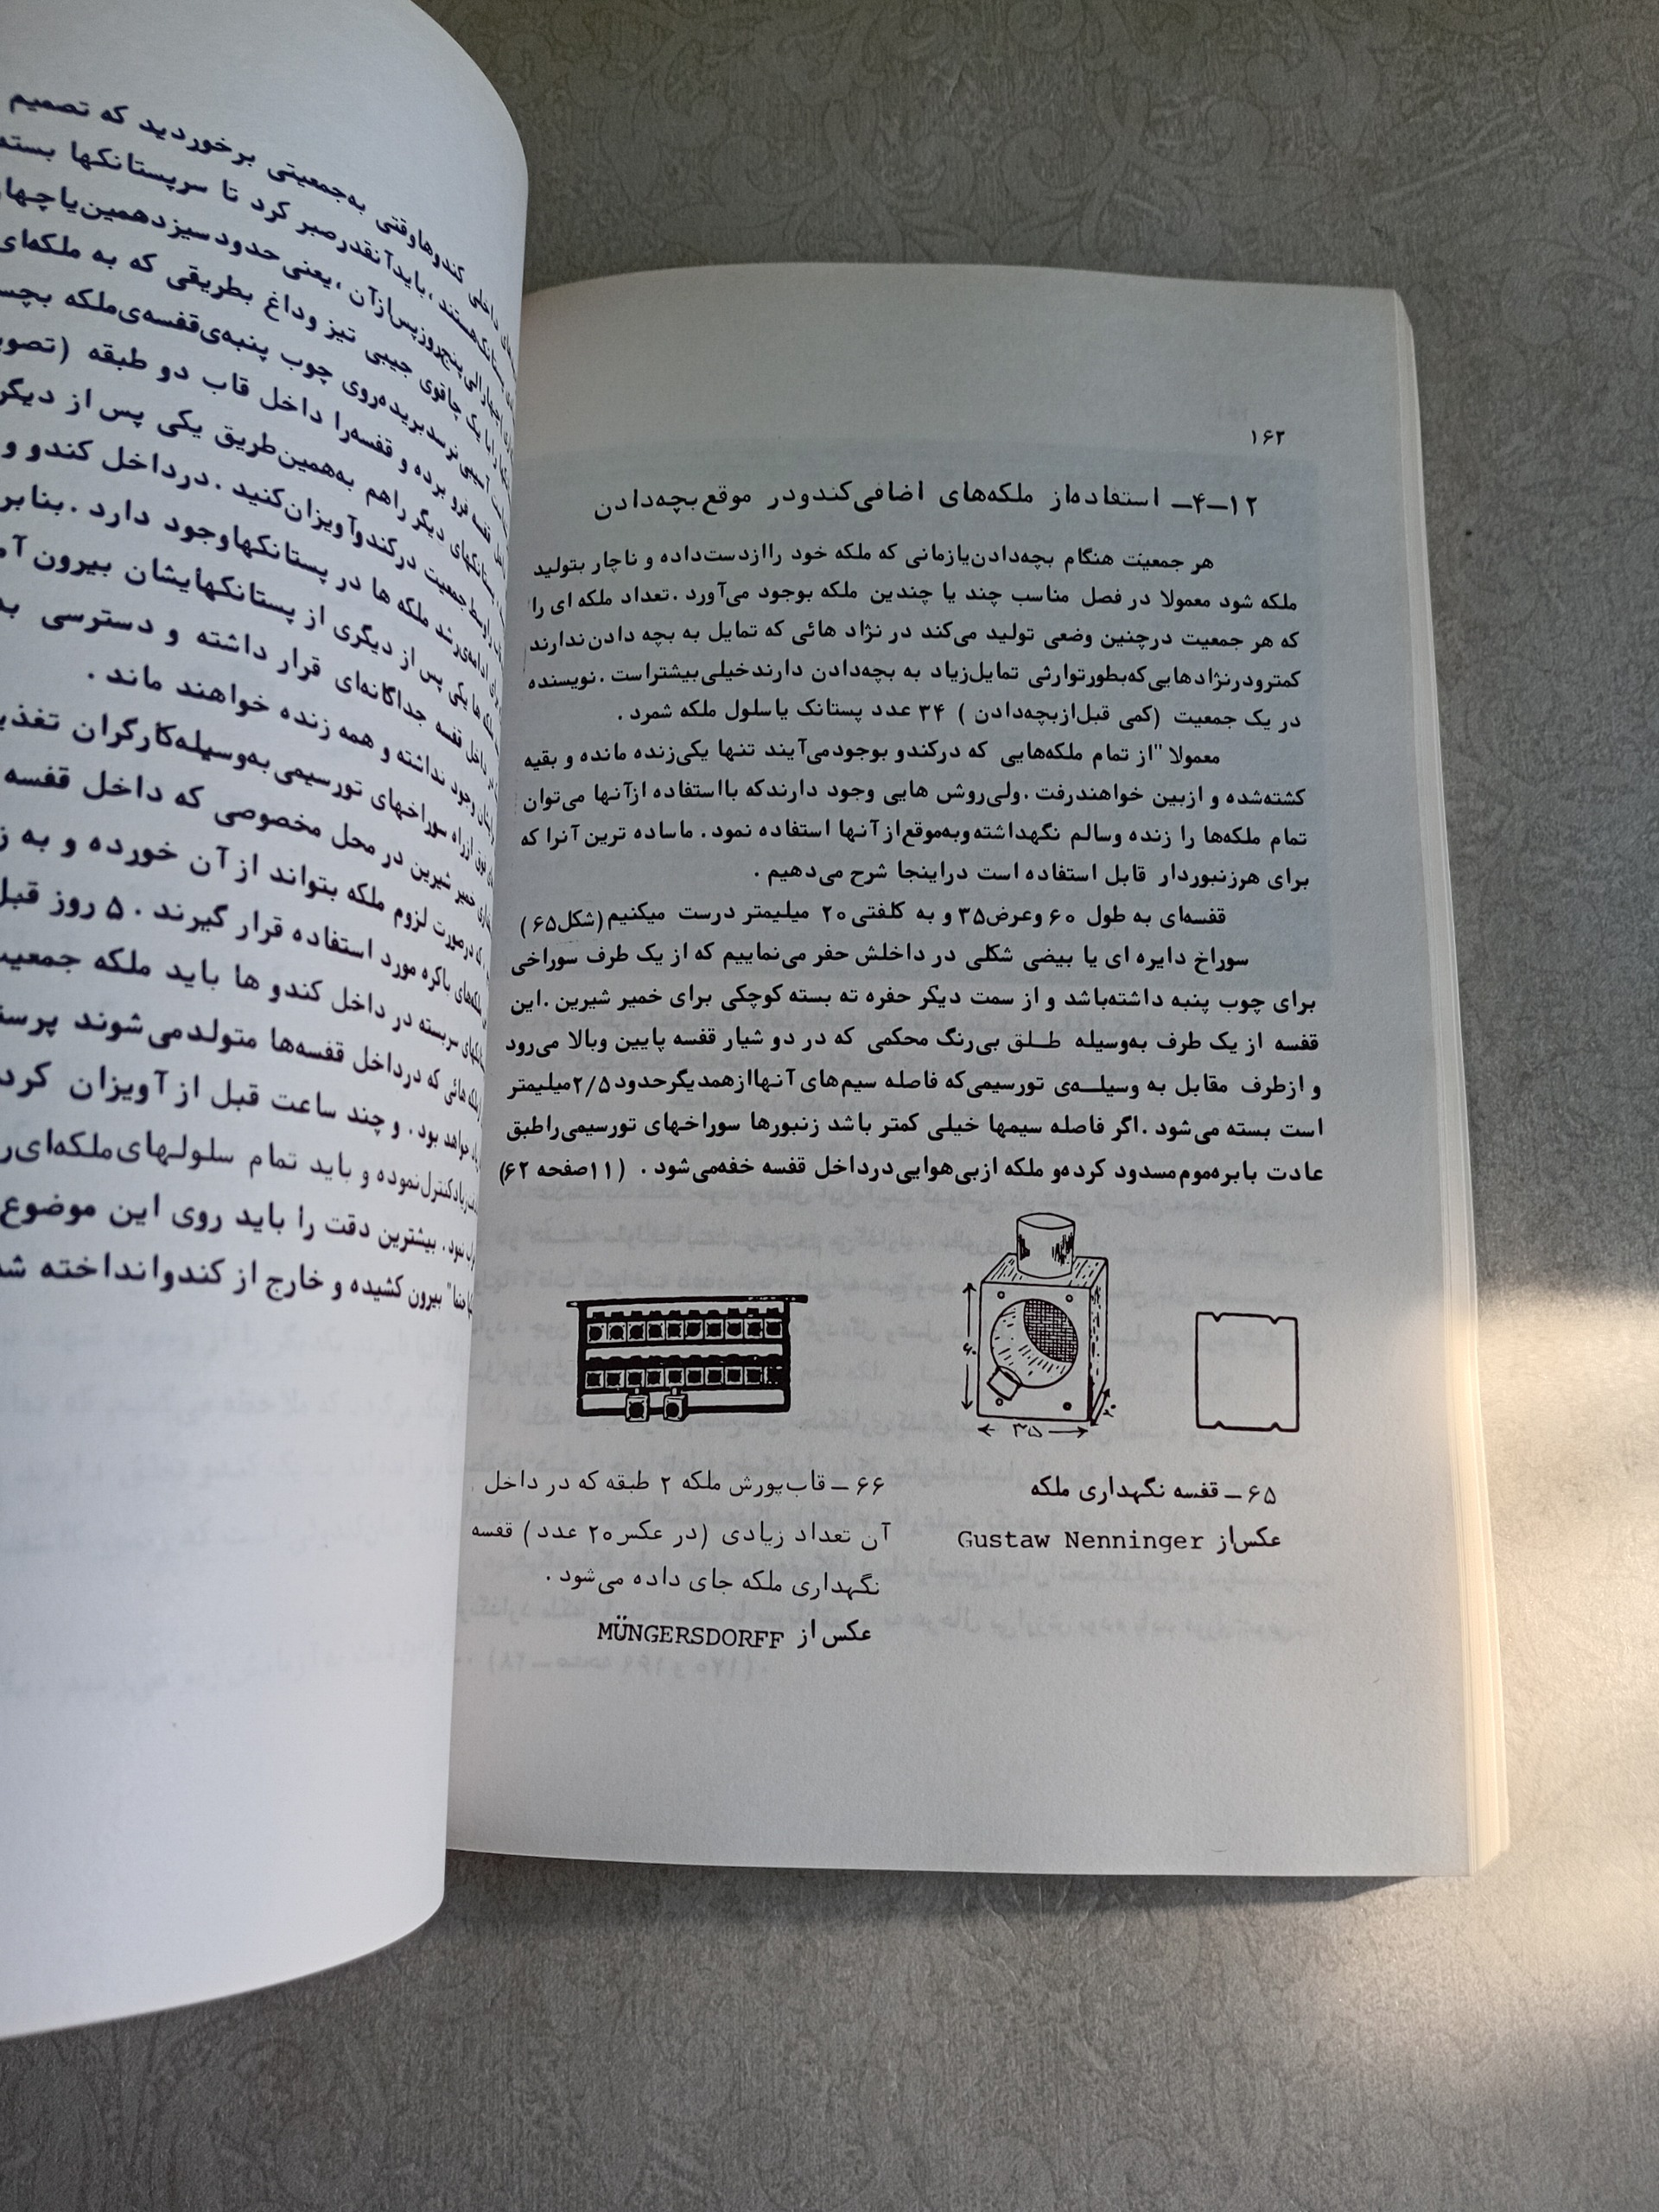 ۱۶۲
۱۲ــ۴ــ استفاده‌از ملکه‌های اضافی‌کندودر موقع‌بچه‌دادن
هر جمعیت هنگام بچه‌دادن‌یازمانی که ملکه خود راازدست‌داده و ناچار بتولید
ملکه شود معمولا در فصل مناسب چند یا چندین ملکه بوجود می‌آورد .تعداد ملکه ای را
که هر جمعیت درچنین وضعی تولید می‌کند در نژاد هائی که تمایل به بچه دادن‌ندارند
کمترودرنژادهایی‌که‌بطورتوارثی تمایل‌زیاد به بچه‌دادن دارندخیلی‌بیشتراست .نویسنده
در یک جمعیت (کمی قبل‌ازبچه‌دادن ) ۳۴ عدد پستانک یاسلول ملکه شمرد .
معمولا "از تمام ملکه‌هایی که درکندو بوجودمی‌آیند تنها یکی‌زنده مانده و بقیه
کشته‌شده و ازبین خواهندرفت .ولی‌روش هایی وجود دارندکه بااستفاده ازآنها می‌توان
تمام ملکه‌ها را زنده وسالم نگهداشته‌وبه‌موقع‌ازآنها استفاده نمود. ماساده ترین آنرا که
برای هرزنبوردار قابل استفاده است دراینجا شرح می‌دهیم .
قفسه‌ای به طول ۶۰ وعرض۳۵ و به کلفتی۲۰ میلیمتر درست میکنیم(شکل۶۵)
سوراخ دایره ای یا بیضی شکلی در داخلش حفر می‌نماییم که از یک طرف سوراخی
برای چوب پنبه داشته‌باشد و از سمت دیگر حفره ته بسته کوچکی برای خمیر شیرین .این
قفسه از یک طرف به‌وسیله طلق بی‌رنگ محکمی که در دو شیار قفسه پایین وبالا می‌رود
و ازطرف مقابل به وسیله‌ی تورسیمی‌که فاصله سیم‌های آنهاازهمدیگرحدود۲/۵میلیمتر
است بسته می‌شود .اگر فاصله سیمها خیلی کمتر باشد زنبورها سوراخهای تورسیمی‌راطبق
عادت بابره‌موم‌مسدود کرده‌و ملکه ازبی‌هوایی‌درداخل قفسه خفه‌می‌شود . (۱۱صفحه ۶۲)
۶۰
۳۵
۲۰
۶۵ ــ قفسه نگهداری ملکه
عکس‌از Gustaw Nenninger
۶۶ ــ قاب‌پورش ملکه ۲ طبقه که در داخل
آن تعداد زیادی (در عکس۲۰ عدد) قفسه
نگهداری ملکه جای داده می‌شود .
عکس از MÜNGERSDORFF
کندوهاوقتی به‌جمعیتی برخوردید که تصمیم
هستند ،بایدآنقدرصبر کرد تا سرپستانکها بسته
پنج‌روزپس‌ازآن ،یعنی حدودسیزدهمین‌یاچهار
یک چاقوی جیبی تیز وداغ بطریقی که به ملکه‌ای
آسیبی‌نرسدبریده‌روی چوب پنبه‌ی‌قفسه‌ی‌ملکه بچس
قفسه فرو برده و قفسه‌را داخل قاب دو طبقه (تصوی
پستانکهای دیگر راهم به‌همین‌طریق یکی پس از دیگر
وسط جمعیت درکندوآویزان‌کنید .درداخل کندو و
ادامه‌ی‌رشد ملکه ها در پستانکهاوجود دارد .بنابر
ها یکی پس از دیگری از پستانکهایشان بیرون آم
داخل قفسه جداگانه‌ای قرار داشته و دسترسی به
وجود نداشته و همه زنده خواهند ماند .
فوق ازراه سوراخهای تورسیمی به‌وسیله‌کارگران تغذی
خمیر شیرین در محل مخصوصی که داخل قفسه
که درصورت لزوم ملکه بتواند ازآن خورده و به ز
ملکه‌های باکره مورد استفاده قرار گیرند . ۵ روز قبل
سربسته در داخل کندو ها باید ملکه جمعیت
هائی که درداخل قفسه‌ها متولدمی‌شوند پرست
خواهد بود. و چند ساعت قبل از آویزان کرد
کنترل‌نموده و باید تمام سلولهای‌ملکه‌ای‌ر
نمود. بیشترین دقت را باید روی این موضوع
بیرون کشیده و خارج از کندوانداخته شد